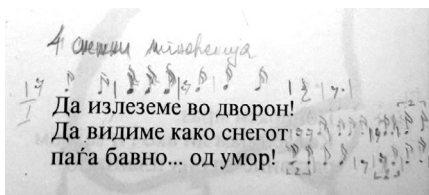 4 снежни
Да излеземе во дворон!
Да видиме како снегот
паѓа бавно... од умор!